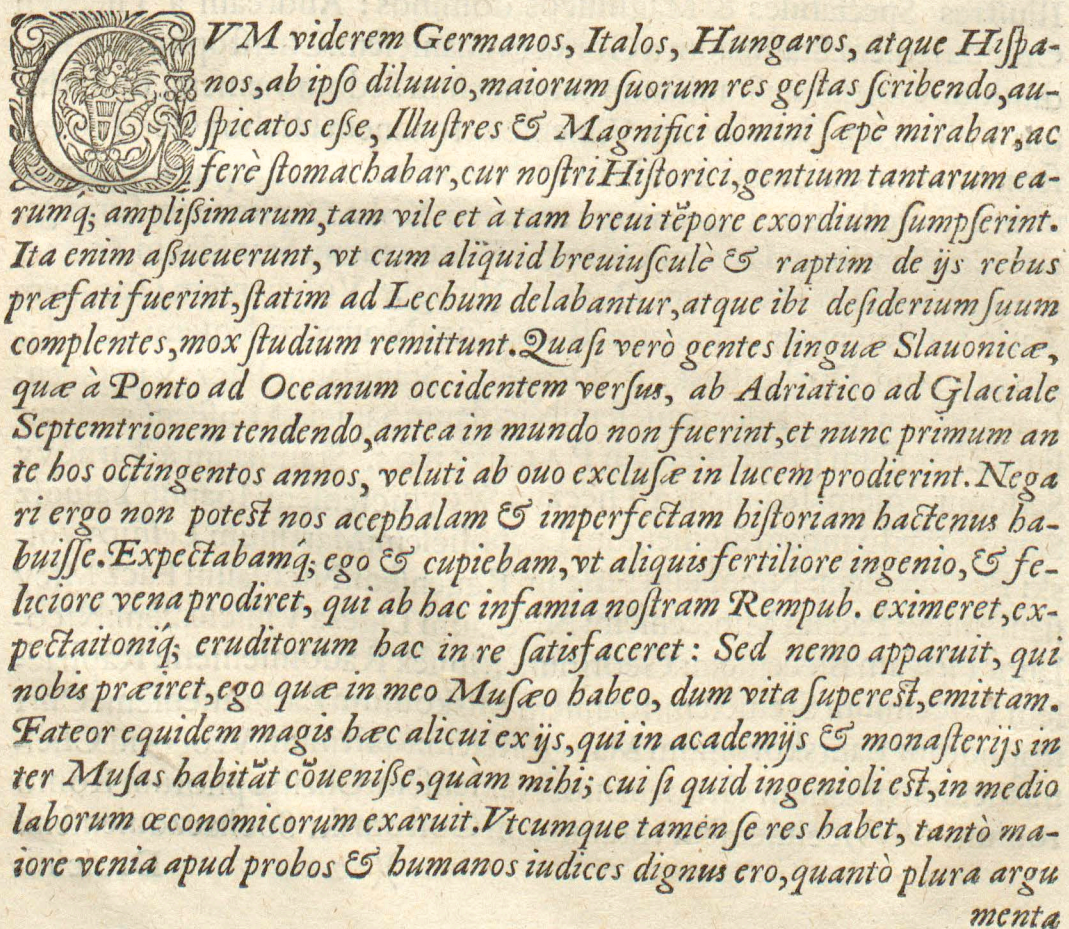 CVM viderem Germanos, Italos, Hungaros, atque Hiſpa-
nos, ab ipſo diluuio, maiorum ſuorum res geſtas ſcribendo, au-
ſpicatos eſſe, Illuſtres & Magnifici domini ſæpè mirabar, ac
ferè ſtomachabar, cur noſtri Hiſtorici, gentium tantarum ea-
rumq́; ampliſsimarum, tam vile et à tam breui tẽpore exordium ſumpſerint.
Ita enim aſſueuerunt, vt cum aliquid breuiuſculè & raptim de ijs rebus
præfati fuerint, ſtatim ad Lechum delabantur, atque ibi deſiderium ſuum
complentes, mox ſtudium remittunt. Quaſi verò gentes linguæ Slauonicæ,
quæ à Ponto ad Oceanum occidentem verſus, ab Adriatico ad Glaciale
Septemtrionem tendendo, antea in mundo non fuerint, et nunc primum an
te hos octingentos annos, veluti ab ouo excluſæ in lucem prodierint. Nega
ri ergo non poteſt nos acephalam & imperfectam hiſtoriam hactenus ha-
buiſſe. Expectabamq́; ego & cupiebam, vt aliquis fertiliore ingenio, & fe-
liciore vena prodiret, qui ab hac infamia noſtram Rempub. eximeret, ex-
pectaitoniq́; eruditorum hac in re ſatisfaceret: Sed nemo apparuit, qui
nobis præiret, ego quæ in meo Muſæo habeo, dum vita ſupereſt, emittam.
Fateor equidem magis hæc alicui ex ijs, qui in academijs & monaſterijs in
ter Muſas habitãt cõueniſſe, quàm mihi; cui ſi quid ingenioli eſt, in medio
laborum œconomicorum exaruit. Vtcumque tamen ſe res habet, tantò ma-
iore venia apud probos & humanos iudices dignus ero, quantò plura argu
menta